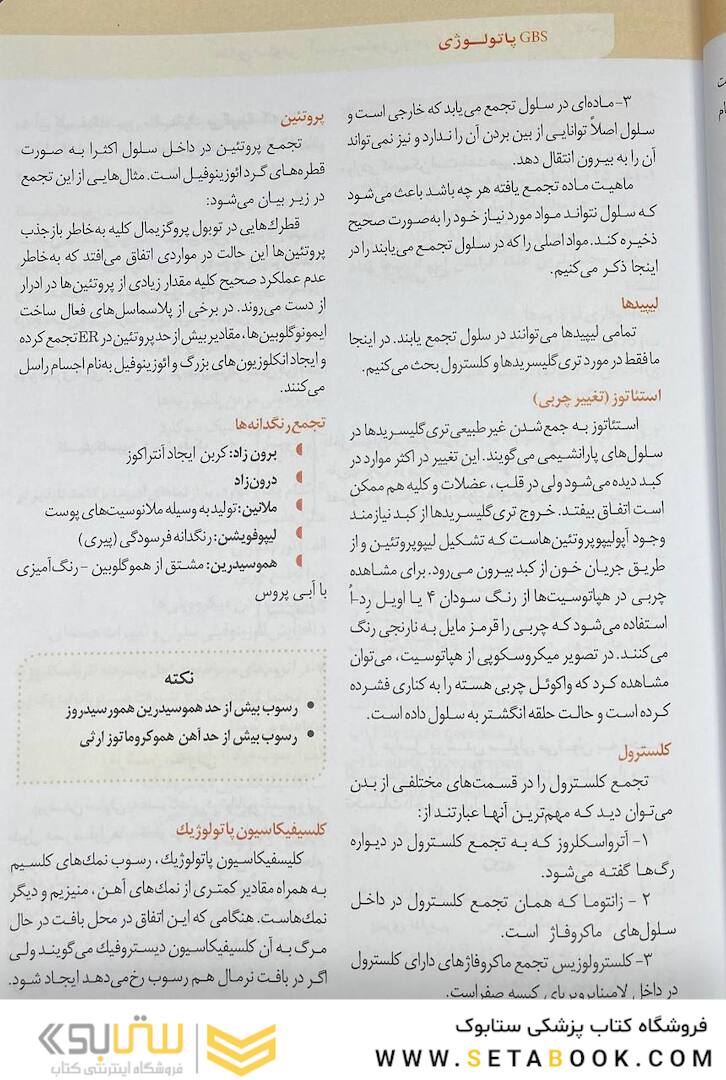 GBS پاتولوژی
۳- ماده‌ای در سلول تجمع می‌یابد که خارجی است و
سلول اصلاً توانایی از بین بردن آن را ندارد و نیز نمی‌تواند
آن را به بیرون انتقال دهد.
ماهیت ماده تجمع یافته هر چه باشد باعث می‌شود
که سلول نتواند مواد مورد نیاز خود را به‌صورت صحیح
ذخیره کند. مواد اصلی را که در سلول تجمع می‌یابند را در
اینجا ذکر می‌کنیم.
لیپیدها
تمامی لیپیدها می‌توانند در سلول تجمع یابند. در اینجا
ما فقط در مورد تری‌گلیسریدها و کلسترول بحث می‌کنیم.
استئاتوز (تغییر چربی)
استئاتوز به جمع‌شدن غیر طبیعی تری‌گلیسریدها در
سلول‌های پارانشیمی می‌گویند. این تغییر در اکثر موارد در
کبد دیده می‌شود ولی در قلب، عضلات و کلیه هم ممکن
است اتفاق بیفتد. خروج تری‌گلیسریدها از کبد نیازمند
وجود آپولیپوپروتئین‌هاست که تشکیل لیپوپروتئین و از
طریق جریان خون از کبد بیرون می‌رود. برای مشاهده
چربی در هپاتوسیت‌ها از رنگ سودان ۴ یا اویل رِد-اُ
استفاده می‌شود که چربی را قرمز مایل به نارنجی رنگ
می‌کنند. در تصویر میکروسکوپی از هپاتوسیت، می‌توان
مشاهده کرد که واکوئل چربی هسته را به کناری فشرده
کرده است و حالت حلقه انگشتر به سلول داده است.
کلسترول
تجمع کلسترول را در قسمت‌های مختلفی از بدن
می‌توان دید که مهم‌ترین آنها عبارتند از:
۱- آترواسکلروز که به تجمع کلسترول در دیواره
رگ‌ها گفته می‌شود.
۲ - زانتوما که همان تجمع کلسترول در داخل
سلول‌های ماکروفاژ است.
۳- کلسترولوزیس تجمع ماکروفاژهای دارای کلسترول
در داخل لامیناپروپریای کیسه صفراست.
پروتئین
تجمع پروتئین در داخل سلول اکثرا به صورت
قطره‌های گرد ائوزینوفیل است. مثال‌هایی از این تجمع
در زیر بیان می‌شود:
قطرك‌هایی در توبول پروگزیمال کلیه به‌خاطر بازجذب
پروتئین‌ها این حالت در مواردی اتفاق می‌افتد که به‌خاطر
عدم عملکرد صحیح کلیه مقدار زیادی از پروتئین‌ها در ادرار
از دست می‌روند. در برخی از پلاسماسل‌های فعال ساخت
ایمونوگلوبین‌ها، مقادیر بیش از حد پروتئین در ER تجمع کرده
و ایجاد انکلوزیون‌های بزرگ و ائوزینوفیل به‌نام اجسام راسل
می‌کنند.
تجمع رنگدانه‌ها
برون زاد: کربن ایجاد آنتراکوز
درون‌زاد
ملانین: تولید به وسیله ملانوسیت‌های پوست
لیپوفویشن: رنگدانه فرسودگی (پیری)
هموسیدرین: مشتق از هموگلوبین - رنگ‌آمیزی
با آبی پروس
نکته
• رسوب بیش از حد هموسیدرین همورسیدروز
• رسوب بیش از حد آهن هموکروماتوز ارثی
کلسیفیکاسیون پاتولوژیك
کلیسفیکاسیون پاتولوژیك، رسوب نمك‌های کلسیم
به همراه مقادیر کمتری از نمك‌های آهن، منیزیم و دیگر
نمك‌هاست. هنگامی که این اتفاق در محل بافت در حال
مرگ به آن کلسیفیکاسیون دیستروفیك می‌گویند ولی
اگر در بافت نرمال هم رسوب رخ می‌دهد ایجاد شود.
فروشگاه کتاب پزشکی ستابوک
WWW.SETABOOK.COM
ستابوک
فروشگاه اینترنتی کتاب